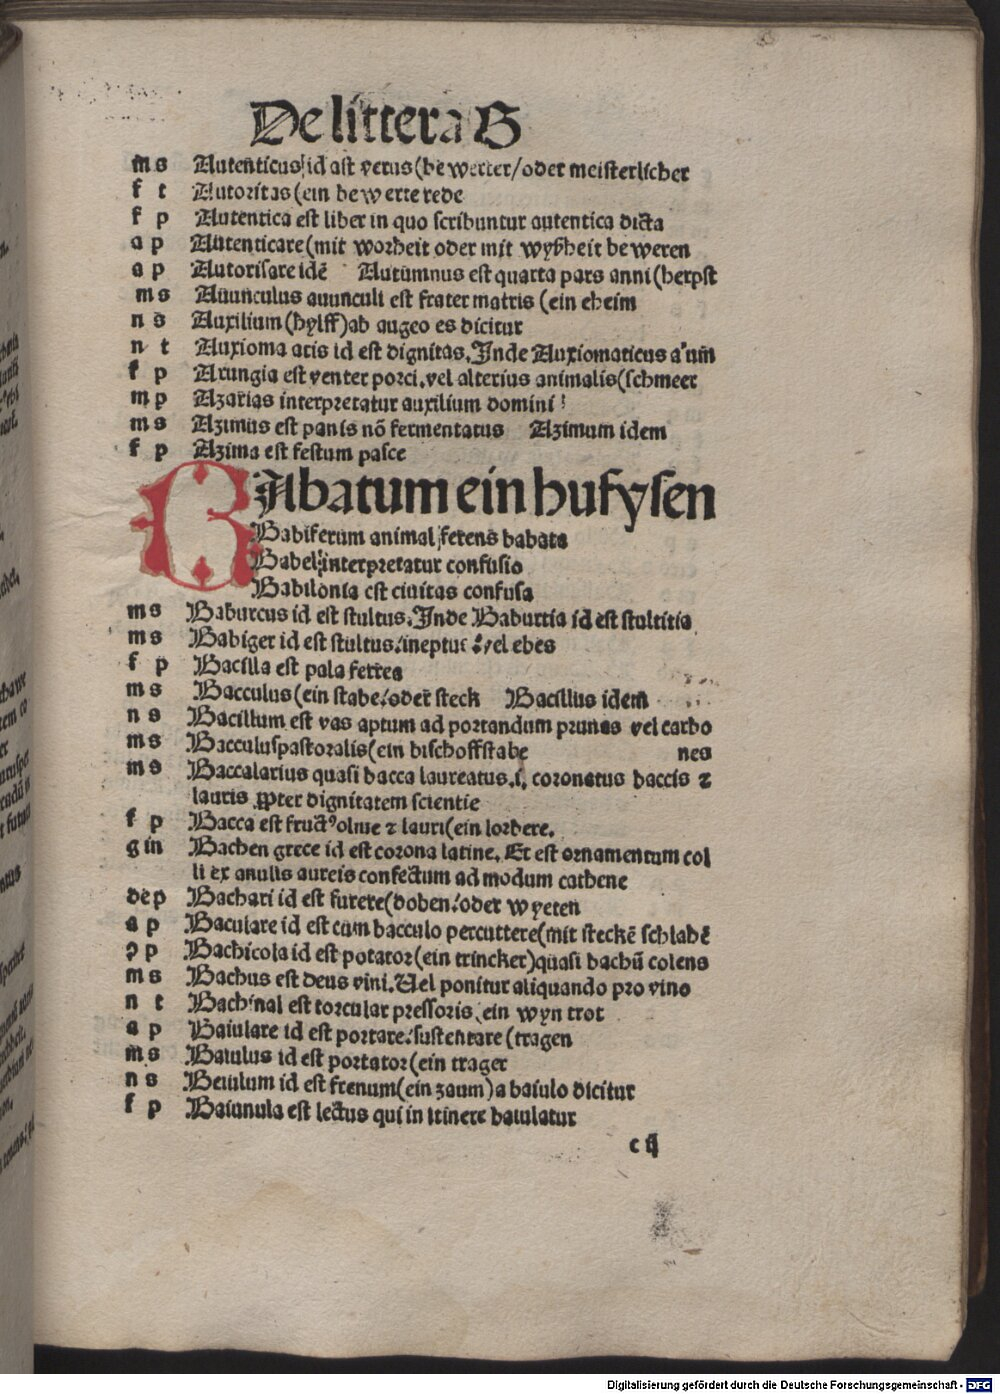 De littera B
m s Autenticus/id aſt verus (be werter/oder meiſterlicher
f t Autoritas (ein be werte rede
f p Autentica eſt liber in quo ſcribuntur autentica dicta
a p Autenticare (mit worheit oder mit wyßheit be weren
a p Autoriſare idē Autumnus eſt quarta pars anni (herpſt
m s Auunculus auunculi eſt frater matris (ein eheim
n s Auxilium (hylff) ab augeo es dicitur
n t Auxioma atis id eſt dignitas. Inde Auxiomaticus a um̄
f p Axungia eſt venter porci. vel alterius animalis (ſchmeer
m p Azarias interpretatur auxilium domini
m s Azimus eſt panis nō fermentatus Azimum idem
f p Azima eſt feſtum paſce
BAbatum ein hufyſen
Babiferum animal ferens babata
Babel interpretatur confuſio
Babilonia eſt ciuitas confuſa
m s Baburcus id eſt ſtultus. Inde Baburtia id eſt ſtultitia
m s Babiger id eſt ſtultus: ineptus: vel ebes
f p Bacilla eſt pala ferrea
m s Bacculus (ein ſtabe: oder ſteck Bacillus idem
n s Bacillum eſt vas aptum ad portandum prunas vel carbo
m s Bacculuſpaſtoralis (ein biſchoffſtabe nes
m s Baccalarius quaſi bacca laureatus. i. coronatus baccis ⁊
lauris ꝓpter dignitatem ſcientie
f p Bacca eſt fructꝰ oliue ⁊ lauri (ein lorbere.
g in Bachen grece id eſt corona latine. Et eſt ornamentum col
li ex anulis aureis confectum ad modum cathene
de p Bachari id eſt furere (doben: oder wyeten
a p Baculare id eſt cum bacculo percuttere (mit ſteckē ſchlahē
ꝯ p Bachicola id eſt potator (ein trincker) quaſi bachū colens
m s Bachus eſt deus vini. Uel ponitur aliquando pro vino
n t Bachinal eſt torcular preſſoris, ein wyn trot
a p Baiulare id eſt portare: ſuſtentare (tragen
m s Baiulus id eſt portator (ein trager
n s Beiulum id eſt frenum (ein zaum) a baiulo dicitur
f p Baiunula eſt lectus qui in itinere baiulatur
c ij
Digitalisierung gefördert durch die Deutsche Forschungsgemeinschaft - DFG